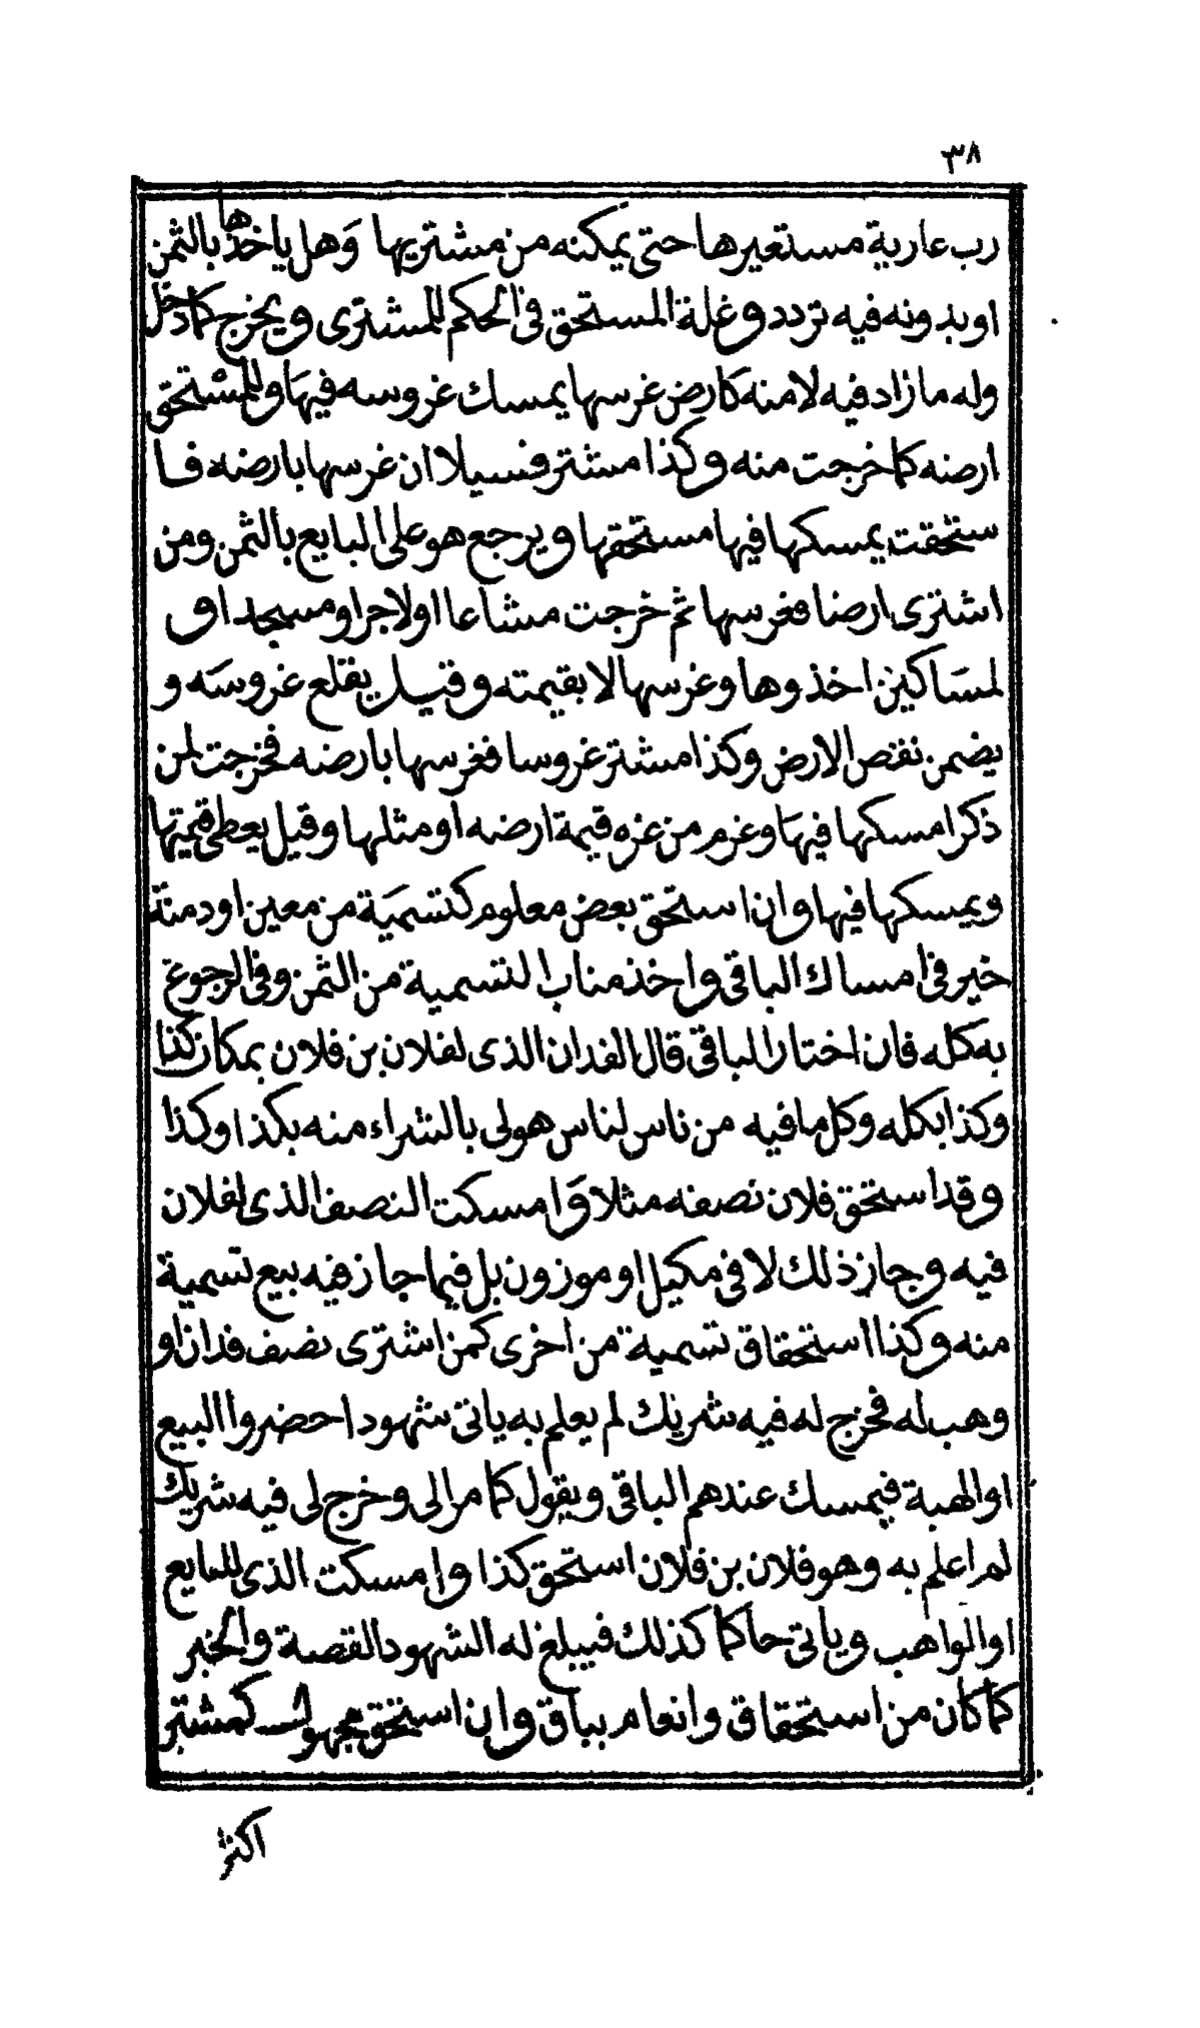 ٣٨
رب عارية مستعيرها حتى يمكنه من مشتريها وَهل ياخذها بالثمن
او بدونه فيه تردد وغلة المستحق في الحكم للمشترى ويخرج كما دخل
وله ما زاد فيه لا منه كارض غرسها يمسك غروسه فيهَا وللمستحق
ارضه كما خرجت منه وكذا مشتر فسيلا ان غرسها بارضه فا
ستحقت يمسكها فيها مستحقها ويرجع هو على البايع بالثمن ومن
اشترى ارضا فغرسها ثم خرجت مشاعا اولاجر او مسجد او
لمسَاكين اخذوها وغرسها الا بقيمته وقيل يقلع غروسَه و
يضمن نقص الارض وكذا مشتر غروسا فغرسها بارضه فخرجت لمن
ذكر امسكها فيهَا وغرم من غره قيمة ارضه او مثلها وقيل يعطى قيمتها
ويمسكها فيها وان استحق بعض معلوم كتسميَة من معين او دمنة
خير في امساك الباقى واخذ مناب التسمية من الثمن وفى الرجوع
به كله فان اختار الباقى قال الفدان الذى لفلان بن فلان بمكان كذا
وكذا بكله وكل ما فيه من ناس لناس هو لى بالشراء منه بكذا وكذا
وقد استحق فلان نصفه مثلا وَامسكت النصف الذى لفلان
فيه وجاز ذلك لا في مكيل او موزون بل فيما جاز فيه بيع تسمية
منه وكذا استحقاق تسمية من اخرى كمن اشترى نصف فدان او
وهب له فخرج له فيه شريك لم يعلم به ياتى شهودا حضروا البيع
او الهبة فيمسك عندهم الباقى ويقول كما مر الى وخرج لى فيه شريك
لم اعلم به وهو فلان بن فلان استحق كذا وامسكت الذى للبايع
او الواهب وياتى حاكما كذلك فيبلغ له الشهود القصة والخبر
كما كان من استحقاق وانعام بباق وان استحق مجهول كمشتر
اكثر